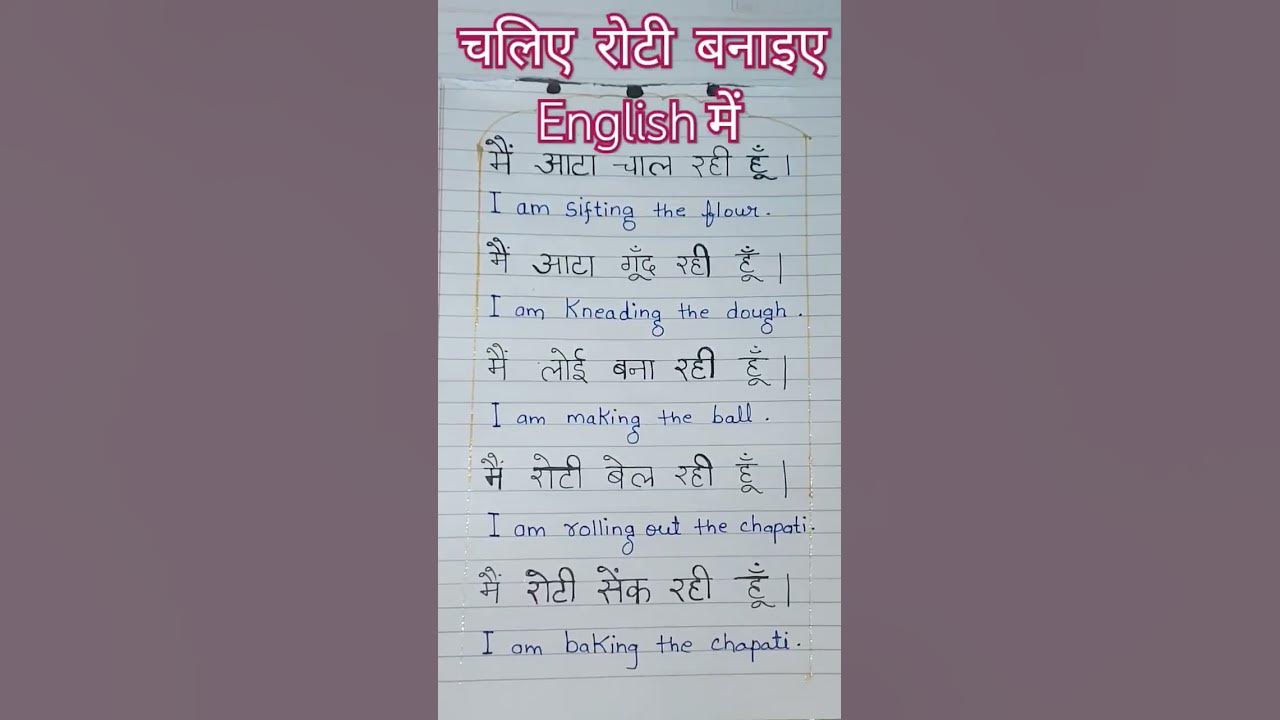 चलिए रोटी बनाइए
English में
मैं आटा चाल रही हूँ।
I am sifting the flour.
मैं आटा गूँद रही हूँ।
I am Kneading the dough.
मैं लोई बना रही हूँ।
I am making the ball.
मैं रोटी बेल रही हूँ।
I am rolling out the chapati.
मैं रोटी सेंक रही हूँ।
I am baking the chapati.